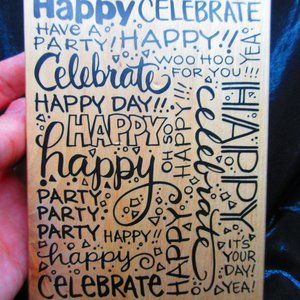 Happy CELEBRATE
HAVE A
PARTY! HAPPY!!
YEA!
Celebrate
WOO HOO
FOR YOU!!!
HAPPY DAY!!!
HAPPY
OH SO
HAPPY!!
celebrate
HAPPY
happy
PARTY
PARTY
PARTY
HAPPY!!
happy
CELEBRATE
IT'S
YOUR
DAY!
YEA!